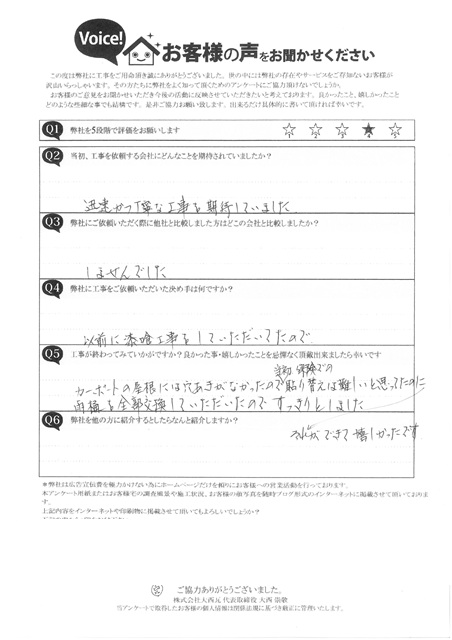 Voice!
お客様の声をお聞かせください
この度は弊社に工事をご用命頂き誠にありがとうございました。世の中には弊社の存在やサービスをご存知ないお客様が
沢山いらっしゃいます。その方たちに弊社をよく知って頂くためのアンケートにご協力頂けないでしょうか。
お客様のご意見をお聞かせいただき今後の活動に反映させていただきたいと考えております。良かったこと、嬉しかったこと
どのような些細な事でも結構です。是非ご協力お願い致します。出来るだけ具体的に書いて頂ければ幸いです。
Q1 弊社を5段階で評価をお願いします
1 2 3 4 5
Q2 当初、工事を依頼する会社にどんなことを期待されていましたか?
迅速かつ丁寧な工事を期待していました
Q3 弊社にご依頼いただく際に他社と比較しました方はどこの会社と比較しましたか?
しませんでした
Q4 弊社に工事をご依頼いただいた決め手は何ですか?
以前に漆喰工事をしていただいてたので
Q5 工事が終わってみていかがですか?良かった事・嬉しかったことを忌憚なく頂戴出来ましたら幸いです
当初 保険での
カーポートの屋根には穴あきがなかったので貼り替えは難しいと思ってたのに
両面を全部交換していただいたのですっきりとしました
Q6 弊社を他の方に紹介するとしたらなんと紹介しますか?
できて嬉しかったです
*弊社は広告宣伝費を極力かけない為にホームページだけを頼りにお客様への営業活動を行っております。
本アンケート用紙またはお客様宅の調査風景や施工状況、お客様の顔写真を随時ブログ形式のインターネットに掲載させて頂いております
上記内容をインターネットや印刷物に掲載させて頂いてもよろしいでしょうか?
ご協力ありがとうございました。
株式会社大西瓦 代表取締役 大西 崇敬
当アンケートで取得したお客様の個人情報は関係法規に基づき適正に管理いたします。